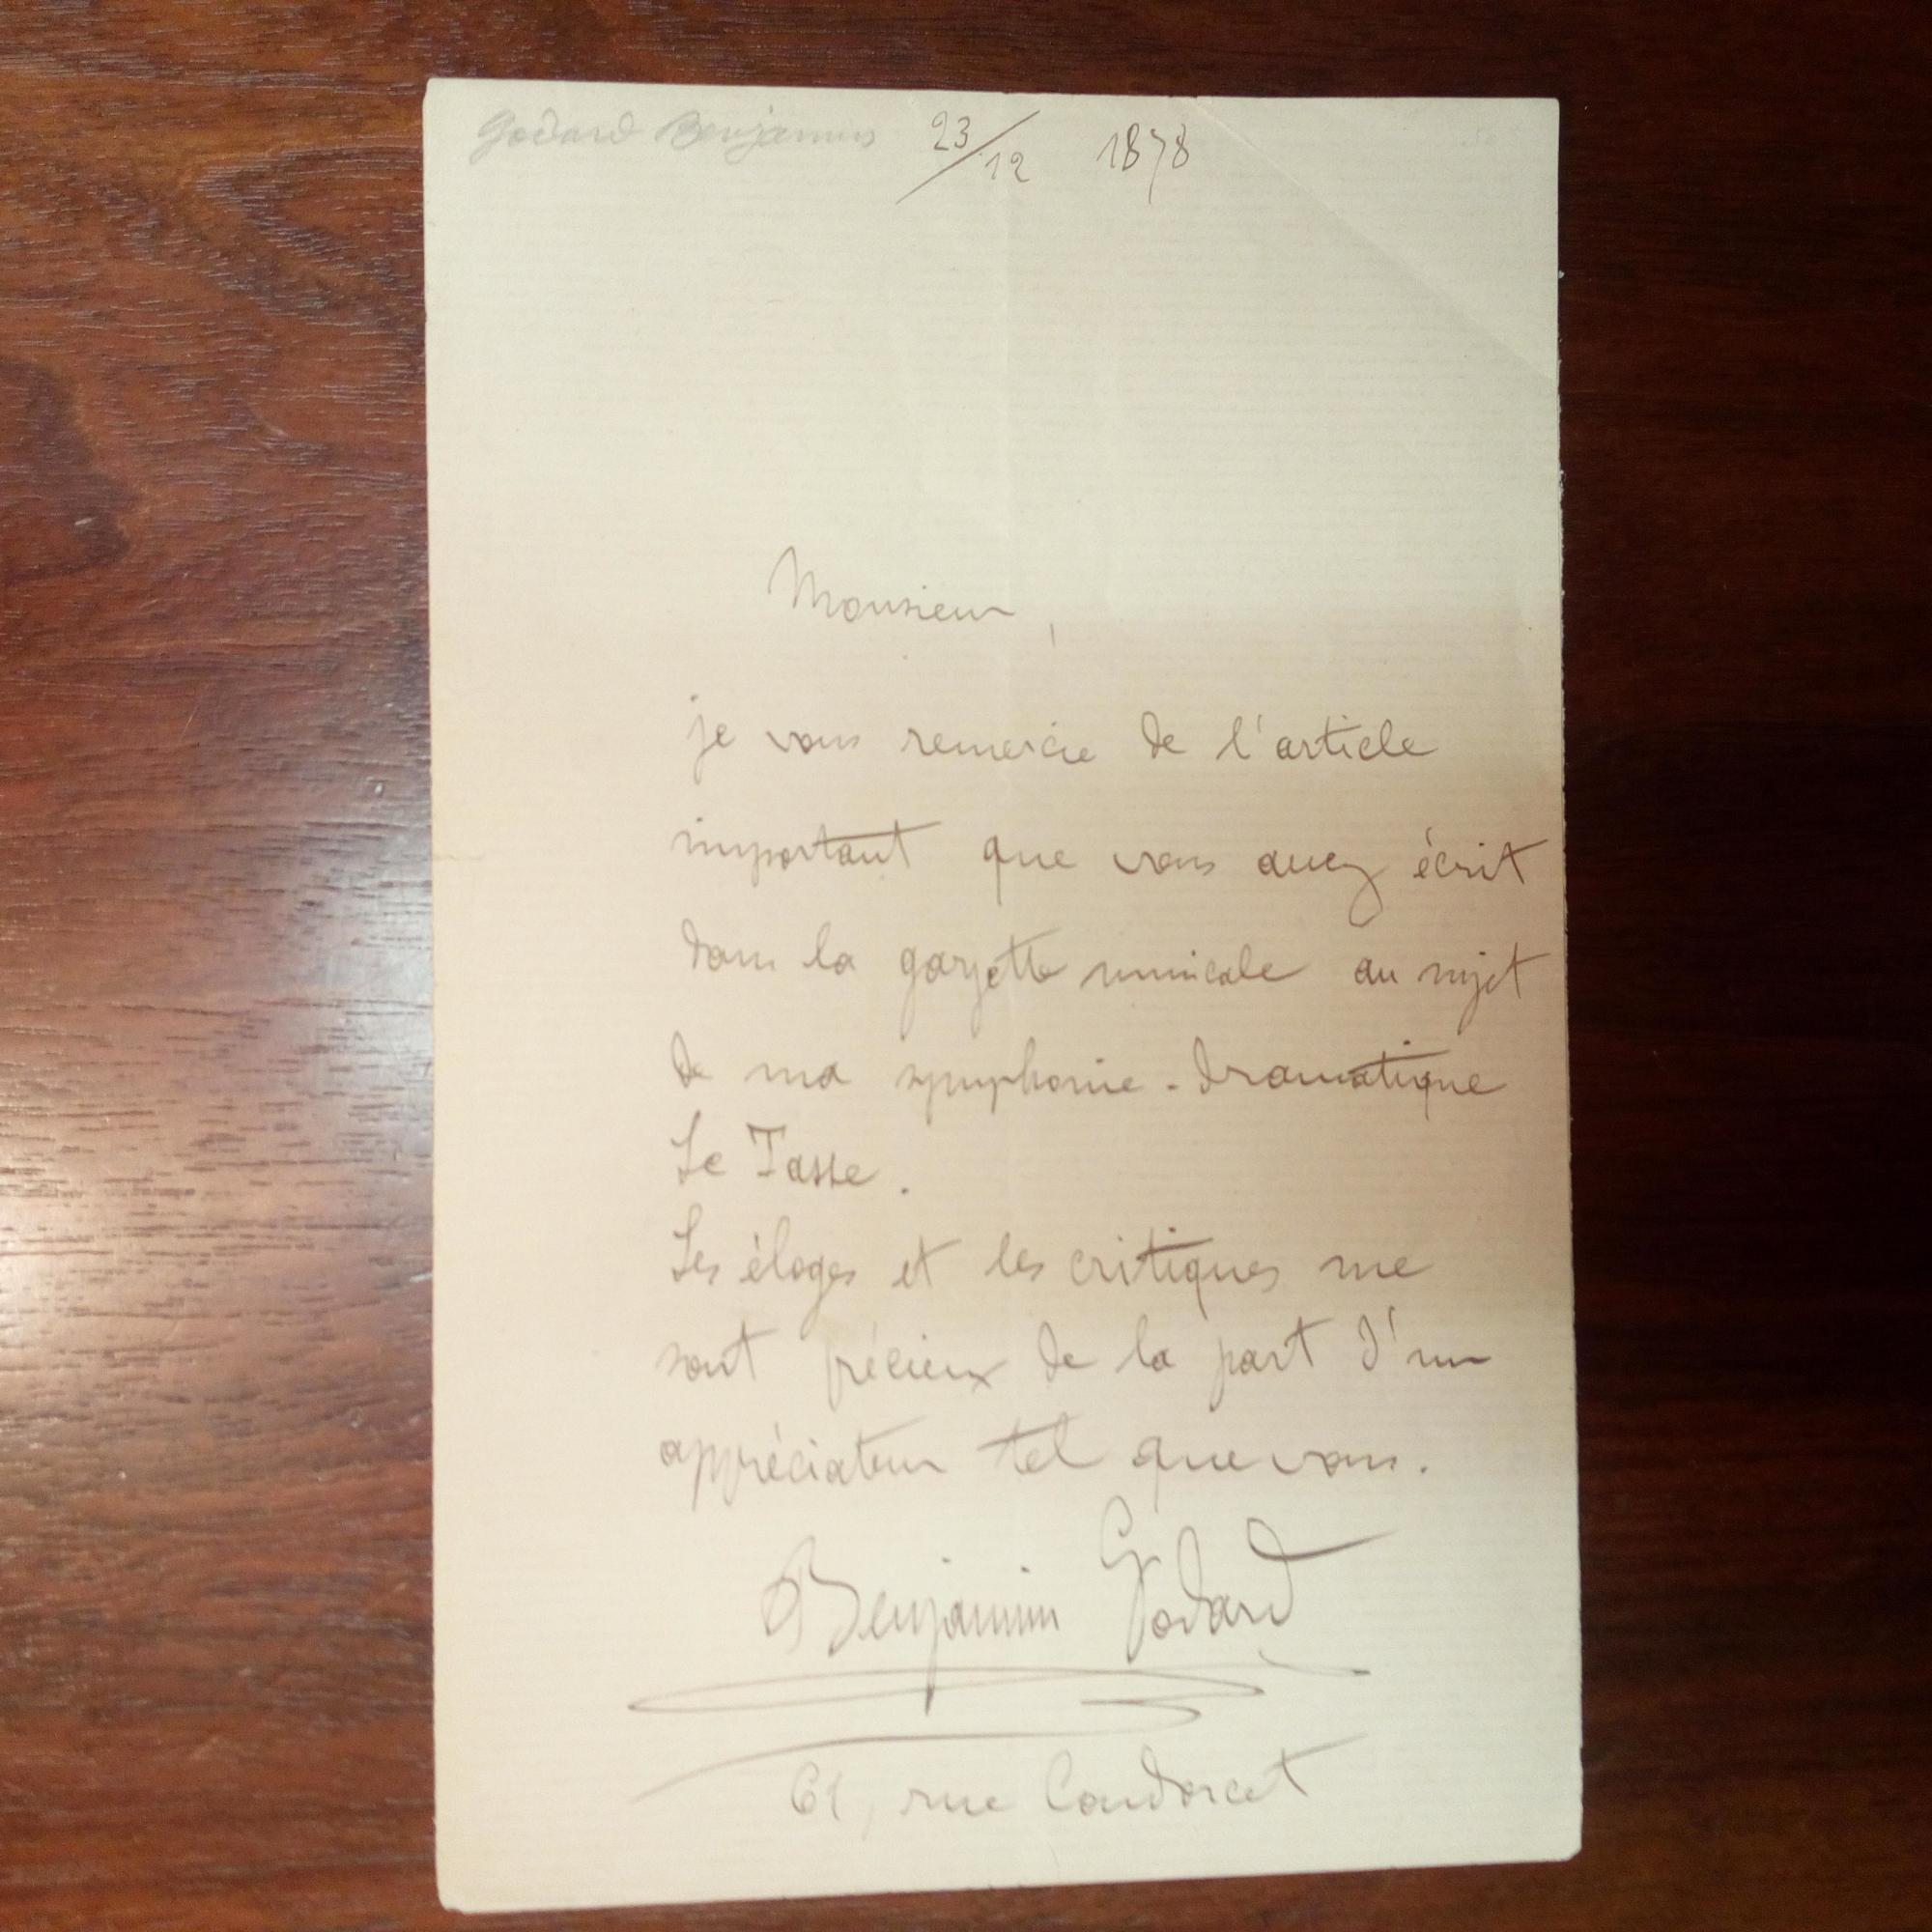 Godard Benjamin 23/12 1878
Monsieur,
je vous remercie de l'article
important que vous avez écrit
dans la gazette musicale au sujet
de ma symphonie-dramatique
Le Tasse.
Les éloges et les critiques me
sont précieux de la part d'un
appréciateur tel que vous.
Benjamin Godard
61, rue Condorcet